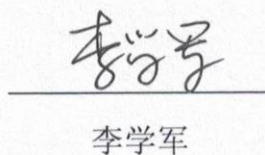 李学军
李学军